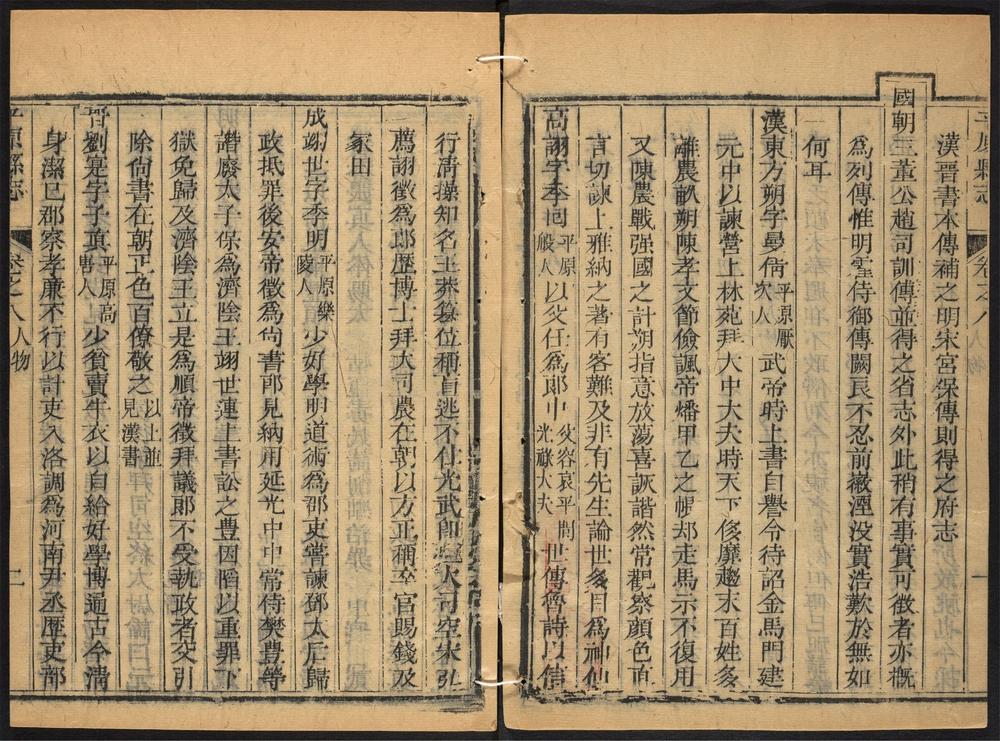 漢晉書本傳補之明宋宮保傳則得之府志
國朝三董公趙司訓傳並得之省志外此稍有事實可徵者亦概
為列傳惟明霍侍御傳闕艮不忍前徽湮没實浩歎於無如
何耳
漢東方朔字曼倩平原厭次人武帝時上書自譽令待詔金馬門建
元中以諫營上林苑拜大中大夫時天下侈靡趨末百姓多
離農畝朔陳孝文節儉諷帝燔甲乙之帳却走馬示不復用
又陳農戰强國之計朔指意放蕩喜詼諧然常觀察顔色直
言切諫上雅納之著有客難及非有先生論世多目為神仙
高詡字季回平原般人以父任為郎中父容哀平間光祿大夫世傳魯詩以信
行清操知名王莽簒位稱盲逃不仕光武即位大司空宋弘
薦詡徵為郎歴博士拜大司農在朝以方正稱卒官賜錢及
冢田
成翊世字季明平原樂陵人少好學明道術為郡吏嘗諫鄧太后歸
政抵罪後安帝徵為尙書郎見納用延光中中常侍樊豊等
譖廢太子保為濟陰王翊世連上書訟之豊因䧟以重罪下
獄免歸及濟陰王立是為順帝徵拜議郎不受執政者交引
除尙書在朝正色百僚敬之以上並見漢書
晉劉寔字子真平原高唐人少貧賣牛衣以自給好學博通古今清
身潔已郡察孝廉不行以計吏入洛調為河南尹丞歴吏部
平原縣志
卷之八人物
二